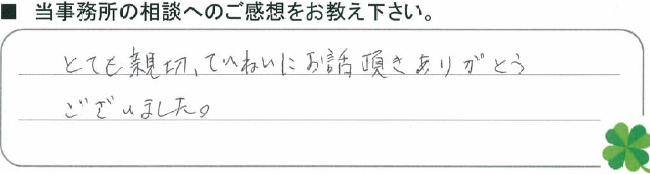 ■ 当事務所の相談へのご感想をお教え下さい。
とても親切、ていねいにお話頂きありがとう
ございました。